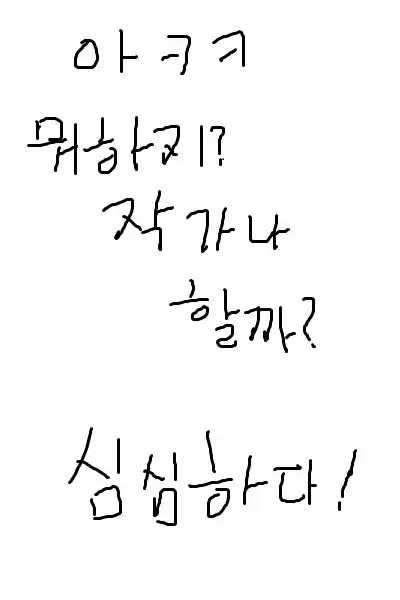 아ㅋㅋ
뭐하지?
작가나
할까?
심심하다!